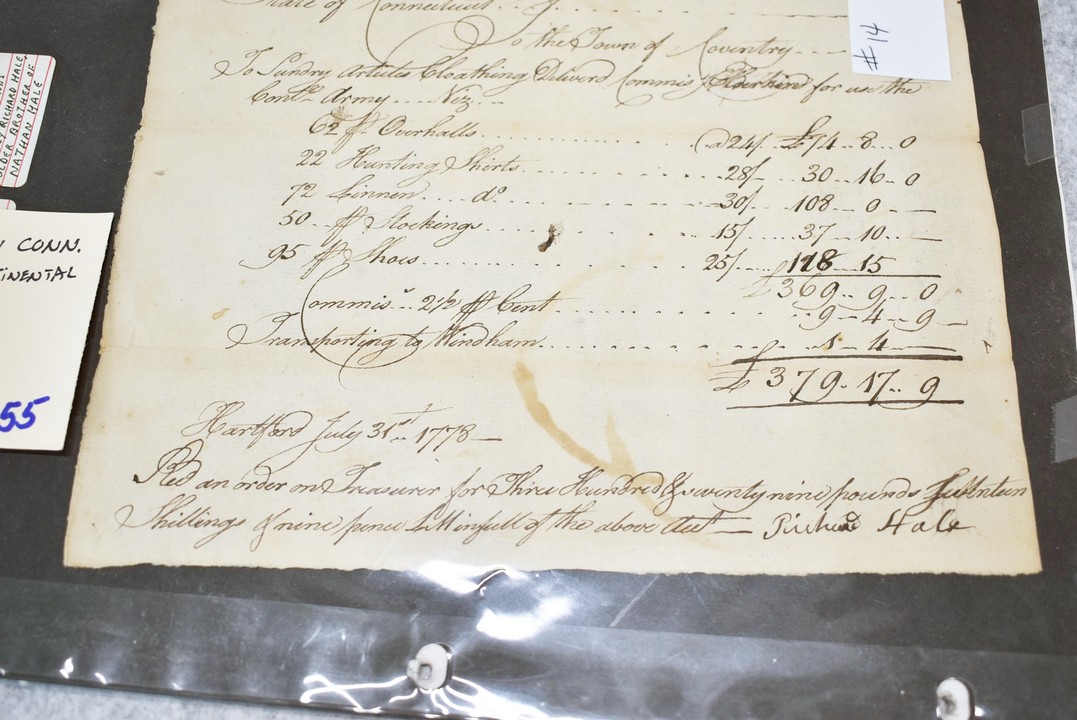 State of Connecticut . . .
To the Town of Coventry - - - -
To Sundry Articles Cloathing Deliverd Commisy Elderkind for use the
Contl. Army .... Viz. ..
62 pr. Overhalls . . . . . . . . . . @ 24/ £74 .. 8 .. 0
22 Hunting Shirts . . . . . . . . 28/ .... 30 .. 16 .. 0
72 Linnen .... do. . . . . . . . 30/ ... 108 .. 0 .. —
50 .. pr Stockings . . . . . . . . 15/ .... 37 .. 10 .. —
95 pr Shoes . . . . . . . . . . 25/ .... 118 .. 15
£369 .. 9 .. 0
Commisn. 2 1/2 pr Cent . . . . . . . . 9 .. 4 .. 9
Transporting to Windham . . . . . . . . 1 .. 4 —
£379 .. 17 .. 9
Hartford July 31st. 1778 —
Recd an order on Treasurer for Three Hundred & seventy nine pounds Seventeen
Shillings & nine pence LM in full of the above Acct — Richard Hale
#14
BY RICHARD HALE,
OLDER BROTHER OF
NATHAN HALE
CONN.
TINENTAL
55